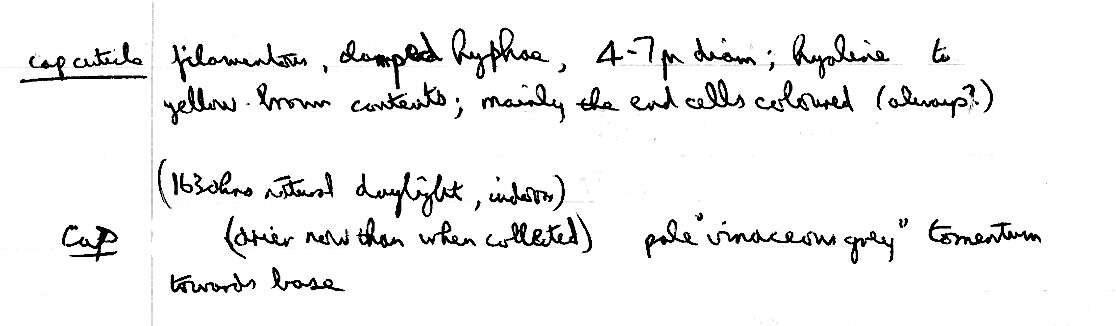 cap cuticle filamentous, clamped hyphae, 4-7µ diam; hyaline to
yellow-brown contents; mainly the end cells coloured (always?)
(1630hrs natural daylight, indoors)
Cap (drier now than when collected) pale "vinaceous grey" tomentum
towards base